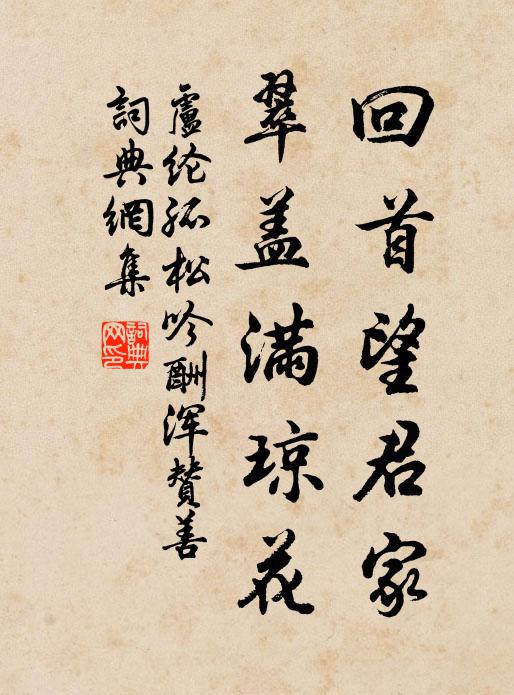 回首望君家
翠盖满琼花
盧纶孤松吟酬浑赞善
詞典網集
詞典
网印